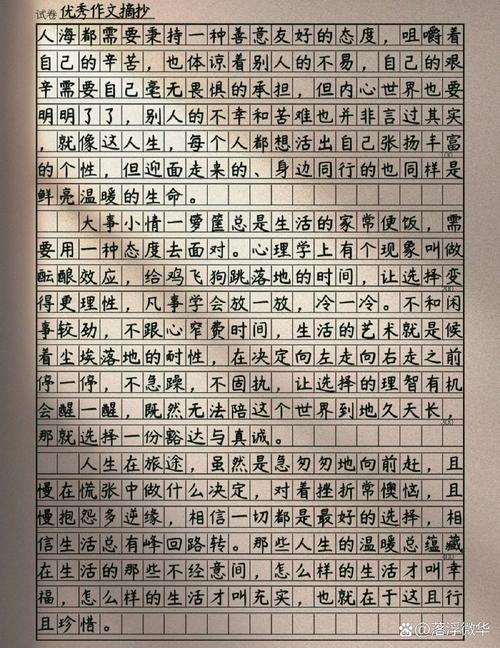 试卷 优秀作文摘抄
人海都需要秉持一种善意友好的态度，咀嚼着
自己的辛苦，也体谅着别人的不易，自己的艰
辛需要自己毫无畏惧的承担，但内心世界也要
明明了了，别人的不幸和苦难也并非言过其实
，就像这人生，每个人都想活出自己张扬丰富
的个性，但迎面走来的、身边同行的也同样是
鲜亮温暖的生命。
大事小情一箩筐总是生活的家常便饭，需
要用一种态度去面对。心理学上有个现象叫做
酝酿效应，给鸡飞狗跳落地的时间，让选择变
得更理性，凡事学会放一放，冷一冷。不和闲
事较劲，不跟心窄费时间，生活的艺术就是候
着尘埃落地的耐性，在决定向左走向右走之前
停一停，不急躁，不固执，让选择的理智有机
会醒一醒，既然无法陪这个世界到地久天长，
那就选择一份豁达与真诚。
人生在旅途，虽然是急匆匆地向前赶，且
慢在慌张中做什么决定，对着挫折常懊恼，且
慢抱怨多逆缘，相信一切都是最好的选择，相
信生活总有峰回路转。那些人生的温暖总蕴藏
在生活的那些不经意间，怎么样的生活才叫幸
福，怎么样的生活才叫充实，也就在于这且行
且珍惜。
100
200
300
400
百家号/落浮微华